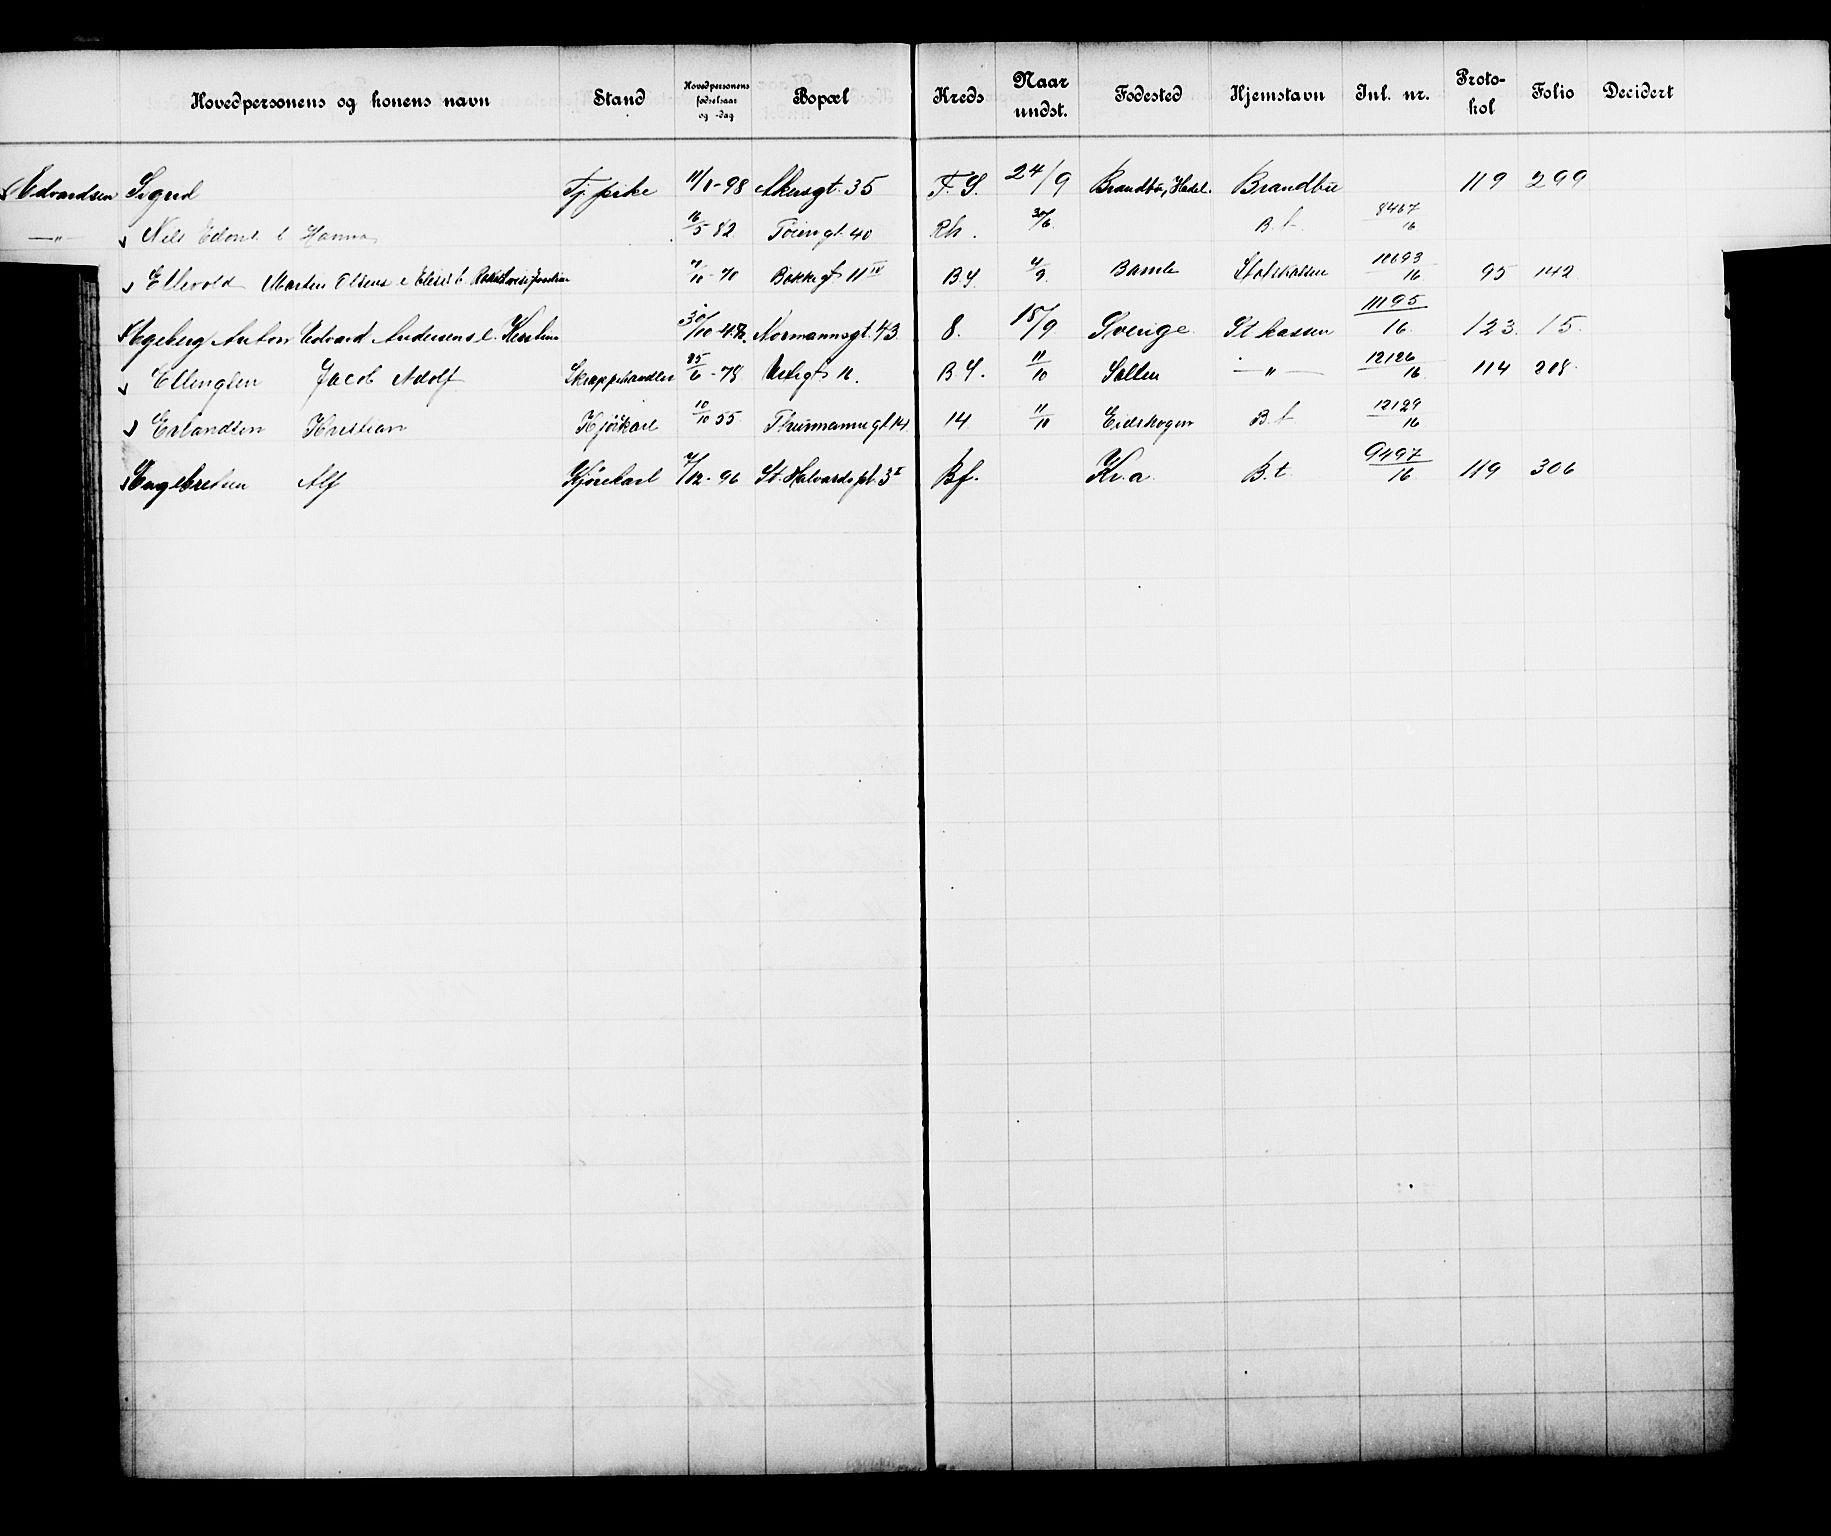 Hovedpersonens og konens navn Stand Hovedpersonens fødselsaar og -dag Bopæl Kreds Naar undst. Fødested Hjemstavn Inl. nr. Protokol Folio Decidert
Edvardsen Sigrid Tj pike 11/8-98 Akersgt. 35 F. S. 24/9 Brandbu, Hadel. Brandbu 119 299
—"— Nils Edvin Hanna 16/5 82 Tøiengt. 40 Rh. 30/6 B. t. 8467/16
Ellevold Martin Olsens e /10-70 Bakkegt 11 IV B.S. 4/9 Bamle Statskassen 95 142
Egeberg Anton Edvard Andersens e. 30/10-42 Normannsgt. 43 8. 18/9 Sverige St kassen 11195/16 123 15
Ellingsen Jacob Adolf Skraphandler 25/6-78 B.S. 11/10 —"— 12126/16 114 208
Erlandsen Kristian Kjørekarl 10/10 55 Thurmannsgt. 14 14 11/10 Eidskogen B. t 12129/16
Engebretsen Alf Kjørekarl 7/12-96 St. Halvards pl. 3 II Bf. Kr.a. B. t. 9497/16 119 306